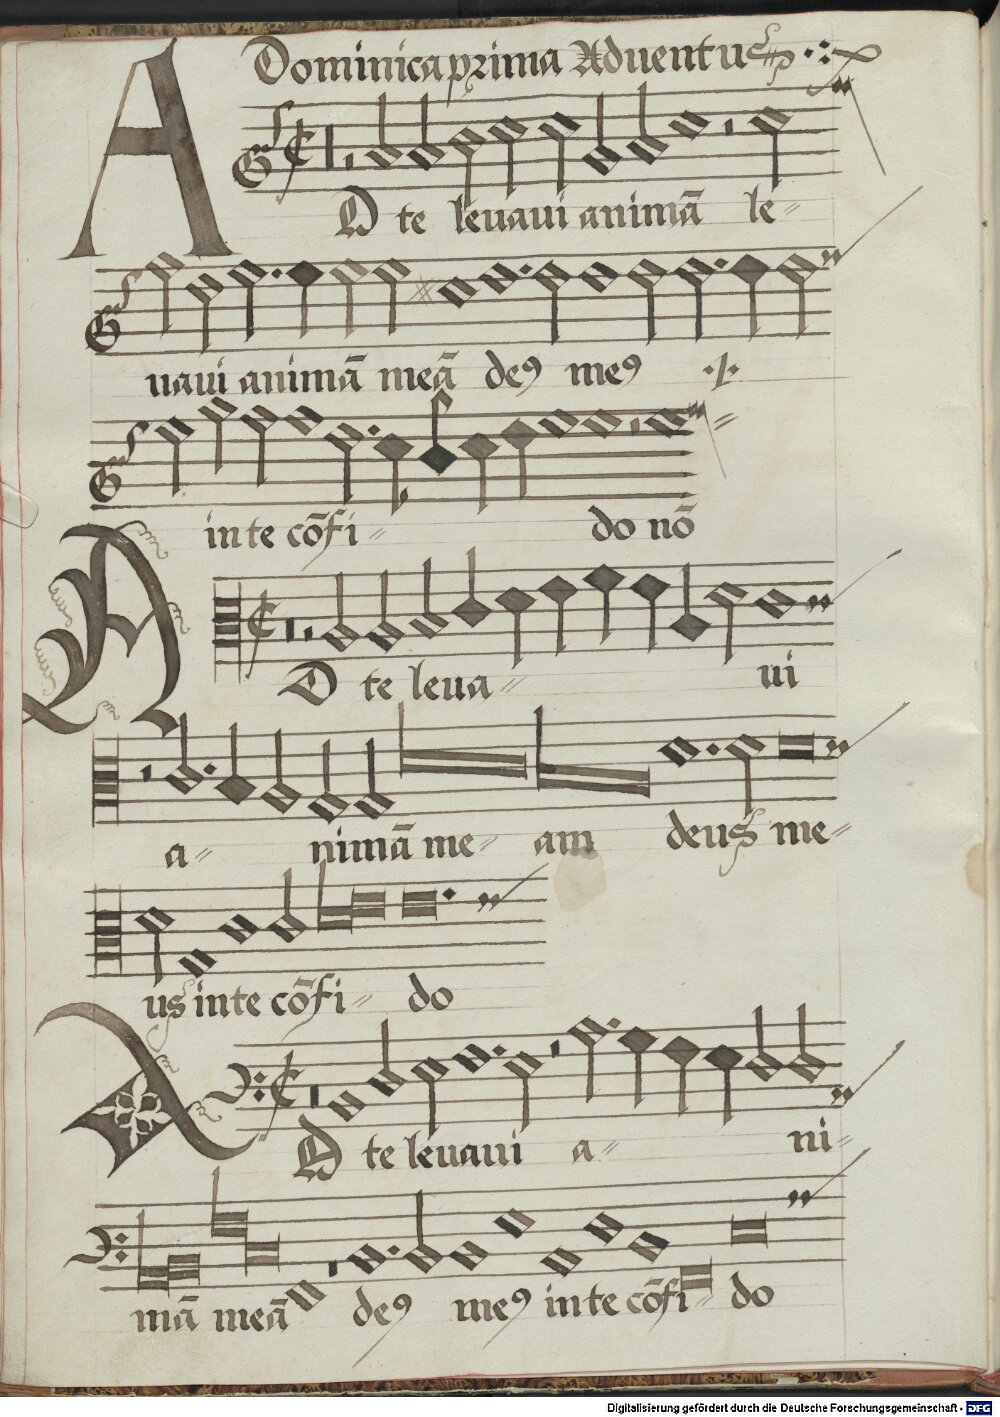 Dominica prima Aduentus
AD te leuaui animā le=
uaui animā meā deꝰ meꝰ ·/·
in te cōfi= do nō
AD te leua= ui
a= nimā me= am deus me=
us in te cōfi= do
AD te leuaui a= ni=
mā meā deꝰ meꝰ in te cōfi= do
Digitalisierung gefördert durch die Deutsche Forschungsgemeinschaft - DFG